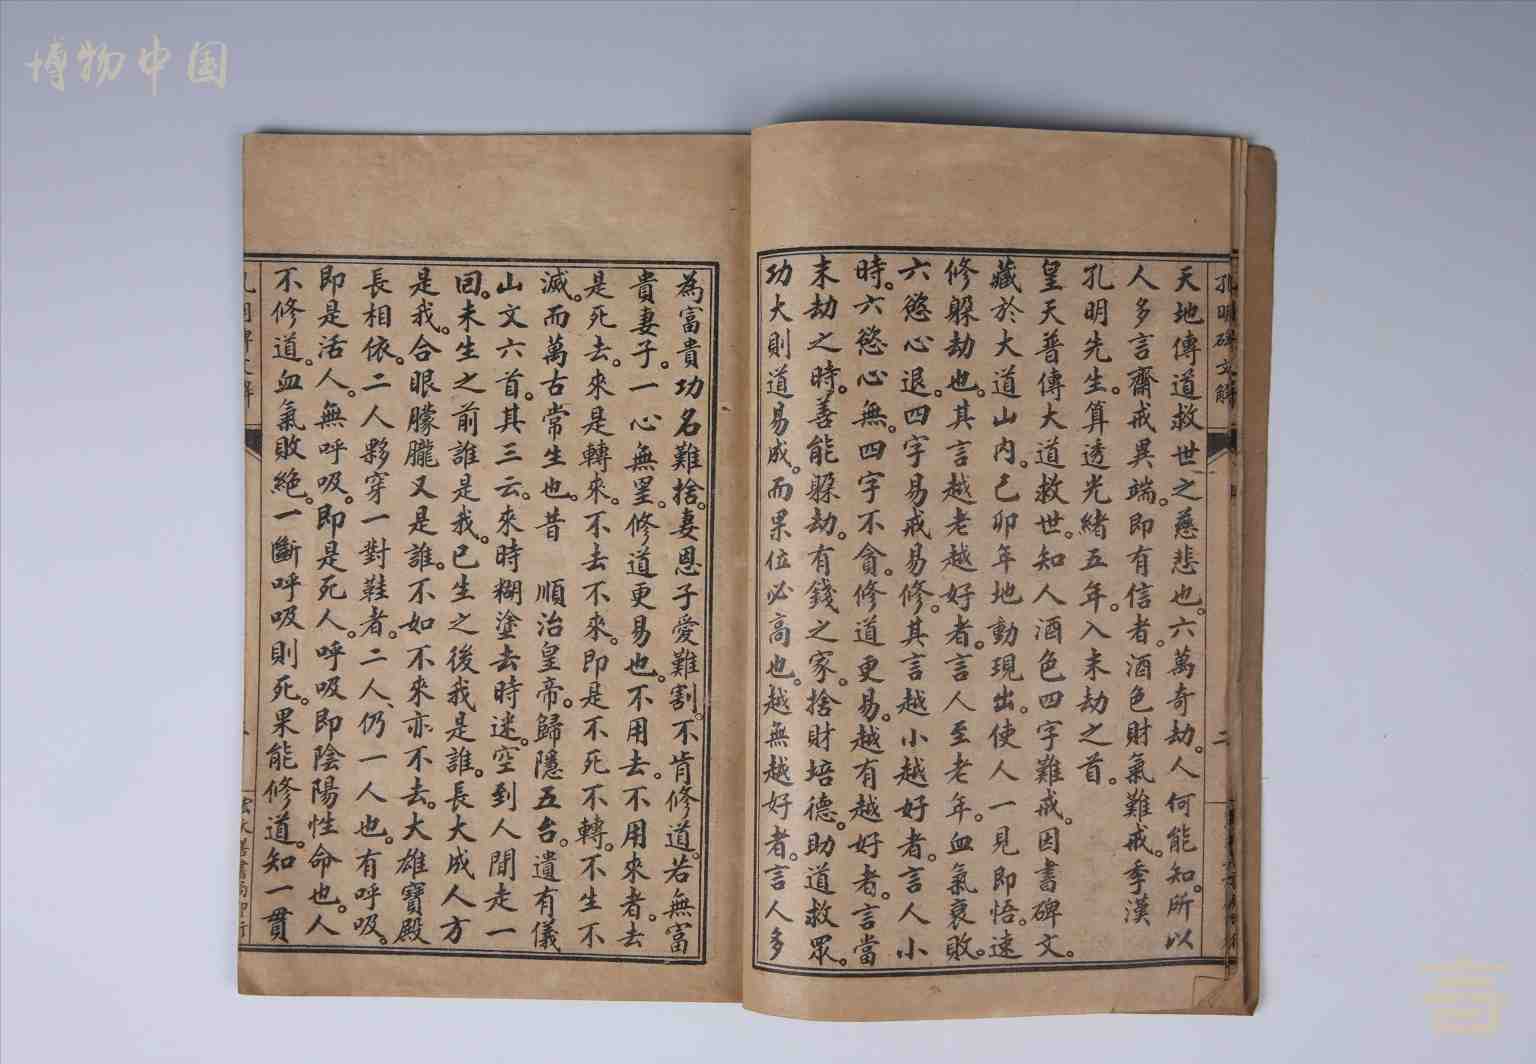 博物中国
孔明碑文解
二
天地傳道救世之慈悲也。六萬奇劫。人何能知。所以
人多言齋戒異端。即有信者。酒色財氣難戒。季漢
孔明先生。算透光緒五年。入末劫之首。
皇天普傳大道救世。知人酒色四字難戒。因書碑文。
藏於大道山內。己卯年地動現出。使人一見即悟。速
修躲劫也。其言越老越好者。言人至老年。血氣衰敗。
六慾心退。四字易戒易修。其言越小越好者。言人小
時。六慾心無。四字不貪。修道更易。越有越好者。言當
末劫之時。善能躲劫。有錢之家。捨財培德。助道救眾。
功大則道易成。而果位必高也。越無越好者。言人多
為富貴功名難捨。妻恩子愛難割。不肯修道。若無富
貴妻子。一心無罣。修道更易也。不用去。不用來者。去
是死去。來是轉來。不去不來。即是不死不轉。不生不
滅。而萬古常生也。昔 順治皇帝。歸隱五台。遺有儀
山文六首。其三云。來時糊塗去時迷。空到人間走一
回。未生之前誰是我。已生之後我是誰。長大成人方
是我。合眼朦朧又是誰。不如不來亦不去。大雄寶殿
長相依。二人夥穿一對鞋者。二人、仍一人也。有呼吸。
即是活人。無呼吸。即是死人。呼吸即陰陽性命也。人
不修道。血氣敗絕。一斷呼吸則死。果能修道。知一貫
善書局印行